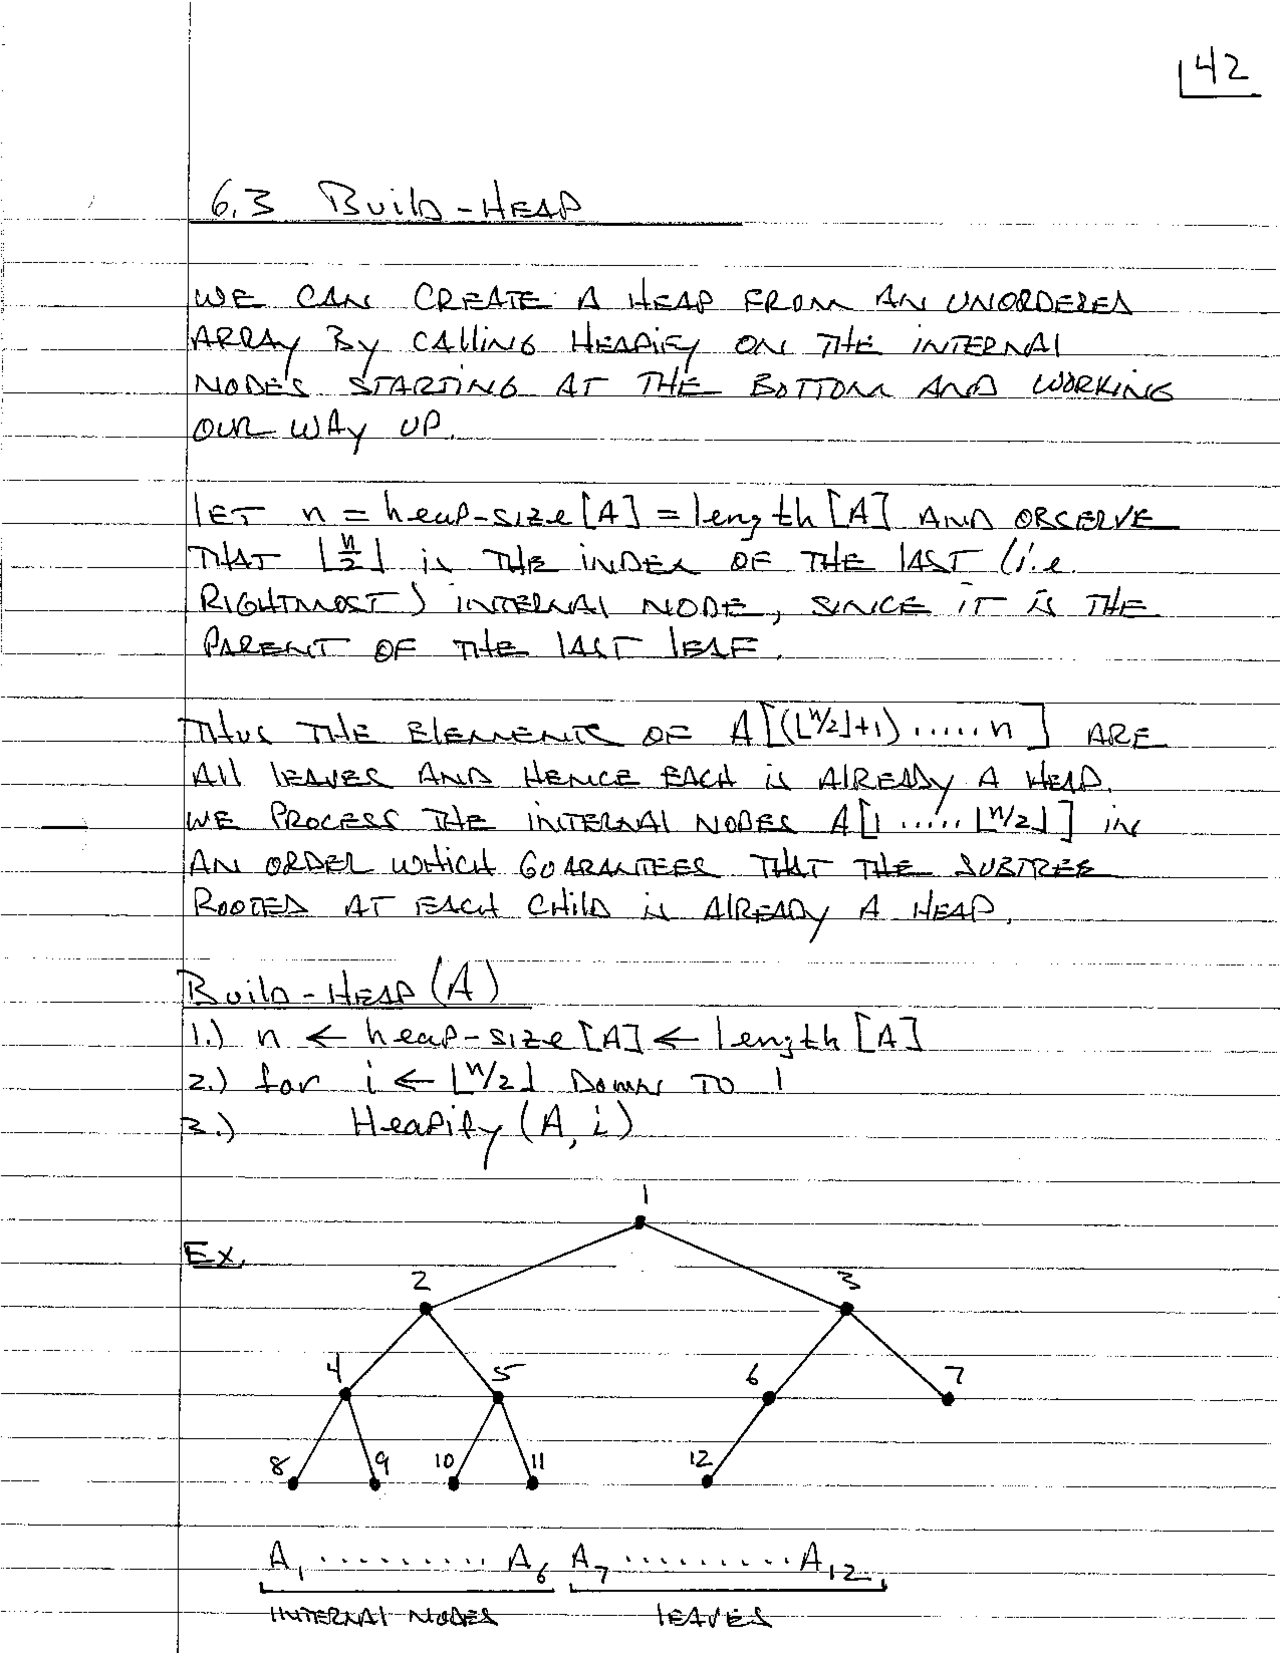 42
6.3 Build-Heap
WE CAN CREATE A HEAP FROM AN UNORDERED
ARRAY BY CALLING HEAPIFY ON THE INTERNAL
NODES STARTING AT THE BOTTOM AND WORKING
OUR WAY UP.
LET n = heap-size[A] = length[A] AND OBSERVE
THAT ⌊n/2⌋ is THE INDEX OF THE LAST (i.e.
RIGHTMOST) INTERNAL NODE, SINCE IT is THE
PARENT OF THE LAST LEAF.
THUS THE ELEMENTS OF A[(⌊n/2⌋+1) ..... n] ARE
ALL LEAVES AND HENCE EACH is ALREADY A HEAP.
WE PROCESS THE INTERNAL NODES A[1 ..... ⌊n/2⌋] in
AN ORDER WHICH GUARANTEES THAT THE SUBTREE
ROOTED AT EACH CHILD is ALREADY A HEAP.
Build-Heap(A)
1.) n ← heap-size[A] ← length[A]
2.) for i ← ⌊n/2⌋ DOWN TO 1
3.) Heapify(A, i)
1
Ex.
2 3
4 5 6 7
8 9 10 11 12
A₁ .......... A₆ A₇ .......... A₁₂
INTERNAL NODES LEAVES